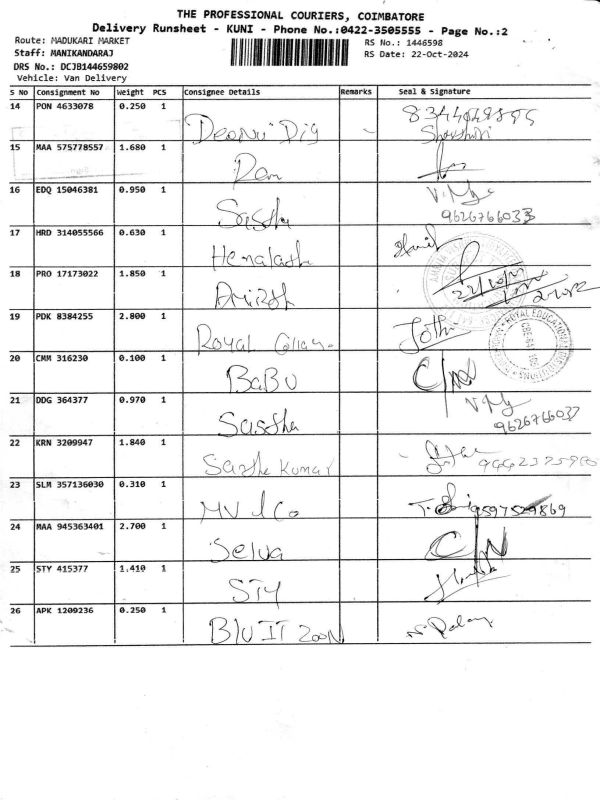 THE PROFESSIONAL COURIERS, COIMBATORE
Delivery Runsheet - KUNI - Phone No.:0422-3505555 - Page No.:2
Route: MADUKARI MARKET
RS No.: 1446598
Staff: MANIKANDARAJ
RS Date: 22-Oct-2024
DRS No.: DCJB144659802
Vehicle: Van Delivery
S No Consignment No Weight PCS Consignee Details Remarks Seal & Signature
14 PON 4633078 0.250 1
15 MAA 575778557 1.680 1
16 EDQ 15046381 0.950 1 Sastha
9626766033
17 HRD 314055566 0.630 1 Hemalatha
18 PRO 17173022 1.850 1
22/10/
19 PDK 8384255 2.800 1 Royal Jothi
20 CMM 316230 0.100 1 BaBU
21 DDG 364377 0.970 1 Sastha
9626766033
22 KRN 3209947 1.840 1 Kumar
23 SLM 357136030 0.310 1 MV & Co
24 MAA 945363401 2.700 1 Selva
25 STY 415377 1.410 1 STY
26 APK 1209236 0.250 1